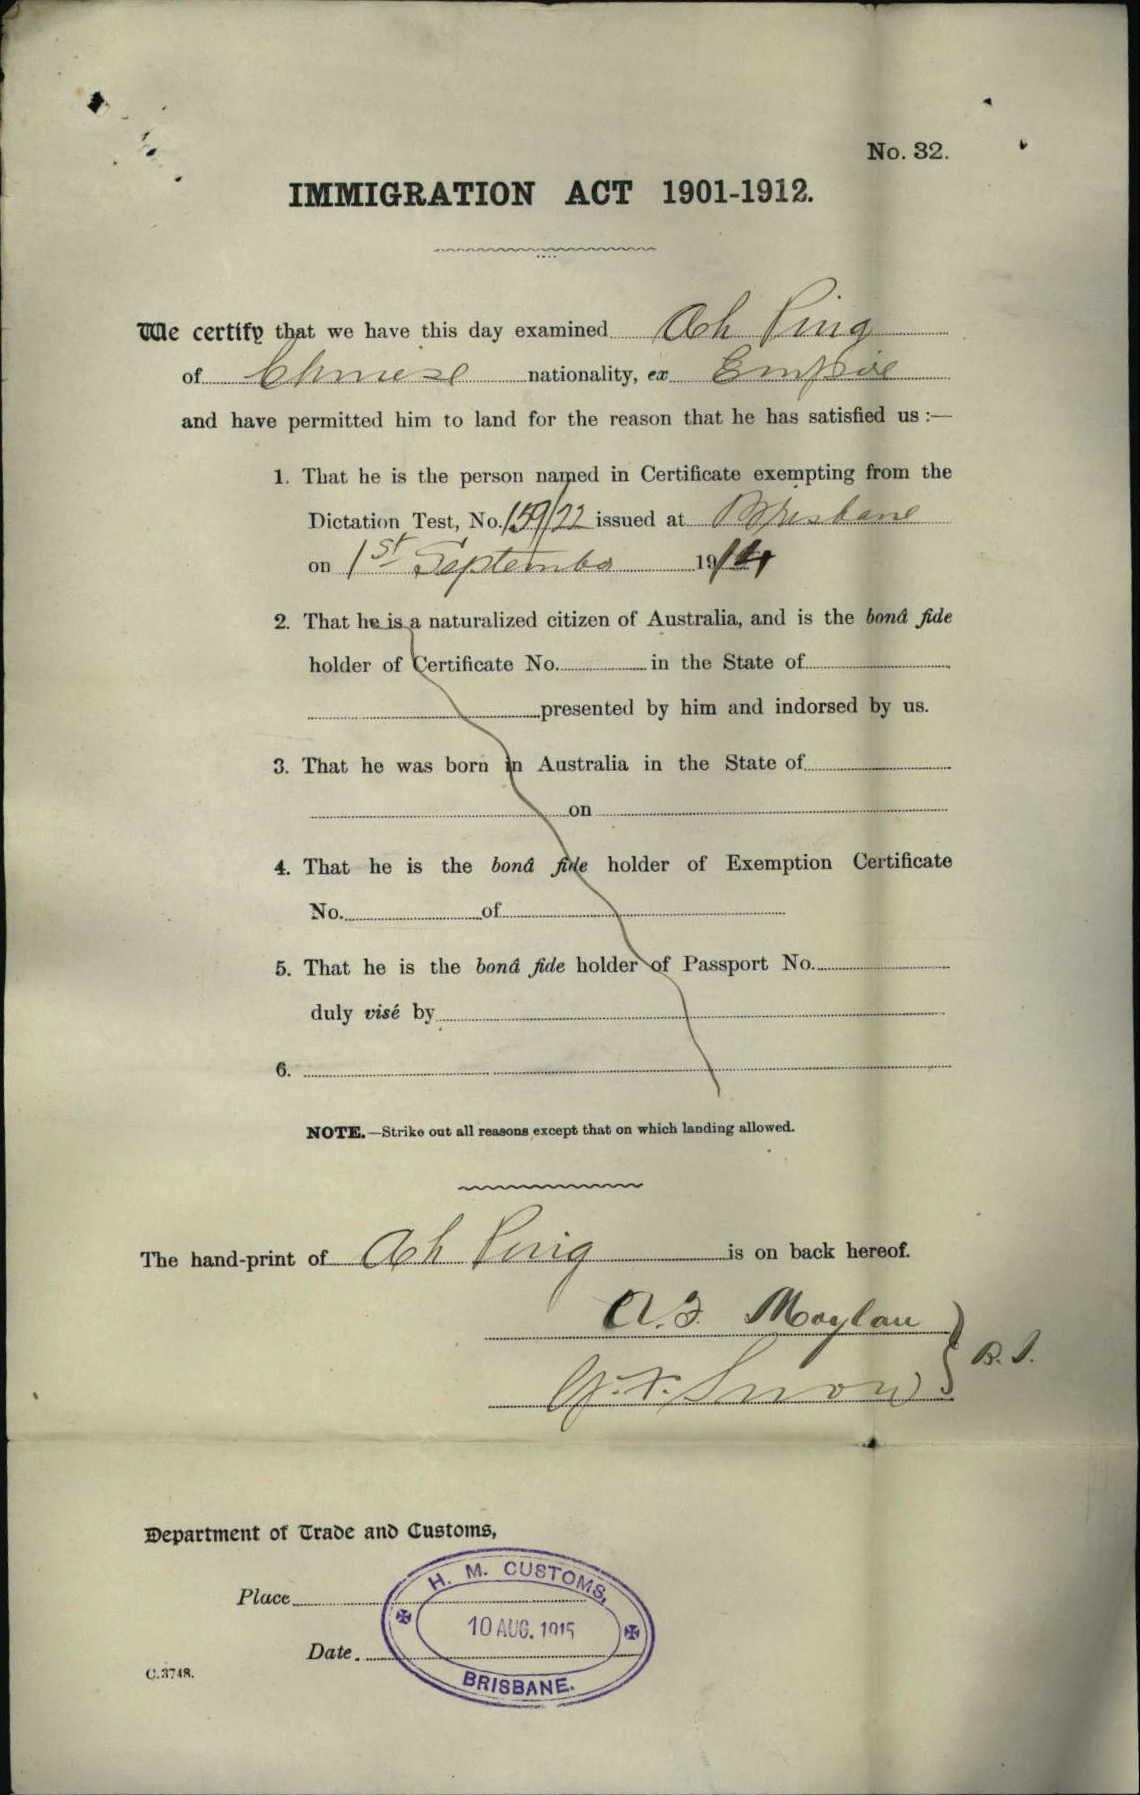 No. 32.
IMMIGRATION ACT 1901-1912.
We certify that we have this day examined Ah Ping
of Chinese nationality, ex Empire
and have permitted him to land for the reason that he has satisfied us :—
1. That he is the person named in Certificate exempting from the
Dictation Test, No. 159/22 issued at Brisbane
on 1st September 1914
2. That he is a naturalized citizen of Australia, and is the bonâ fide
holder of Certificate No. in the State of
presented by him and indorsed by us.
3. That he was born in Australia in the State of
on
4. That he is the bonâ fide holder of Exemption Certificate
No. of
5. That he is the bonâ fide holder of Passport No.
duly visé by
6.
NOTE.—Strike out all reasons except that on which landing allowed.
The hand-print of Ah Ping is on back hereof.
Moylan
Snow
Department of Trade and Customs,
Place
H. M. CUSTOMS,
10 AUG. 1915
BRISBANE.
Date
C.3748.